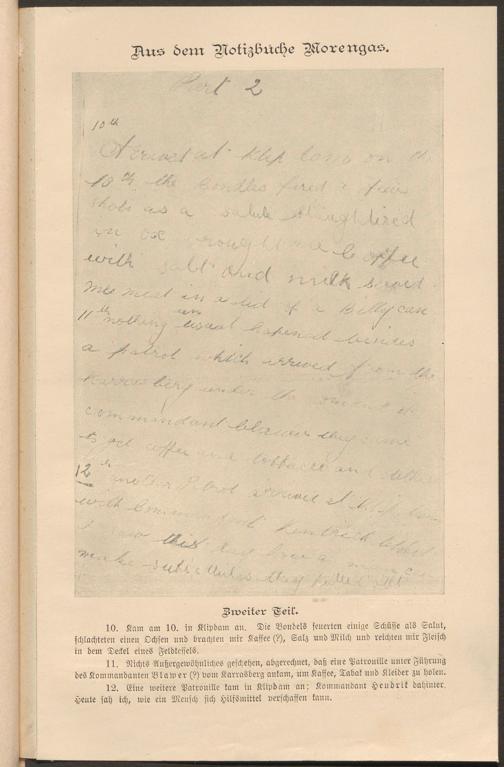 Aus dem Notizbuche Morengas.
Part 2
10th
Arrived at Klip on
10th the Bondles fired a few
shots as a salute slaughtired
an ox brought me Coffee
with salt and milk
me meat in a lid of a Billy can
11th nothing un usual hapened besides
a patrol which arrived from the
Karrasberg under the
commandant they came
to get coffee and tobbacco and
12th another Patrol arrived at
with Commandant
I saw this day how a man can
make
Zweiter Teil.
10. Kam am 10. in Klipdam an. Die Bondels feuerten einige Schüsse als Salut,
schlachteten einen Ochsen und brachten mir Kaffee (?), Salz und Milch und reichten mir Fleisch
in dem Deckel eines Feldkessels.
11. Nichts Außergewöhnliches geschehen, abgerechnet, daß eine Patrouille unter Führung
des Kommandanten Blawer (?) vom Karrasberg ankam, um Kaffee, Tabak und Kleider zu holen.
12. Eine weitere Patrouille kam in Klipdam an; Kommandant Hendrik dahinter.
Heute sah ich, wie ein Mensch sich Hilfsmittel verschaffen kann.